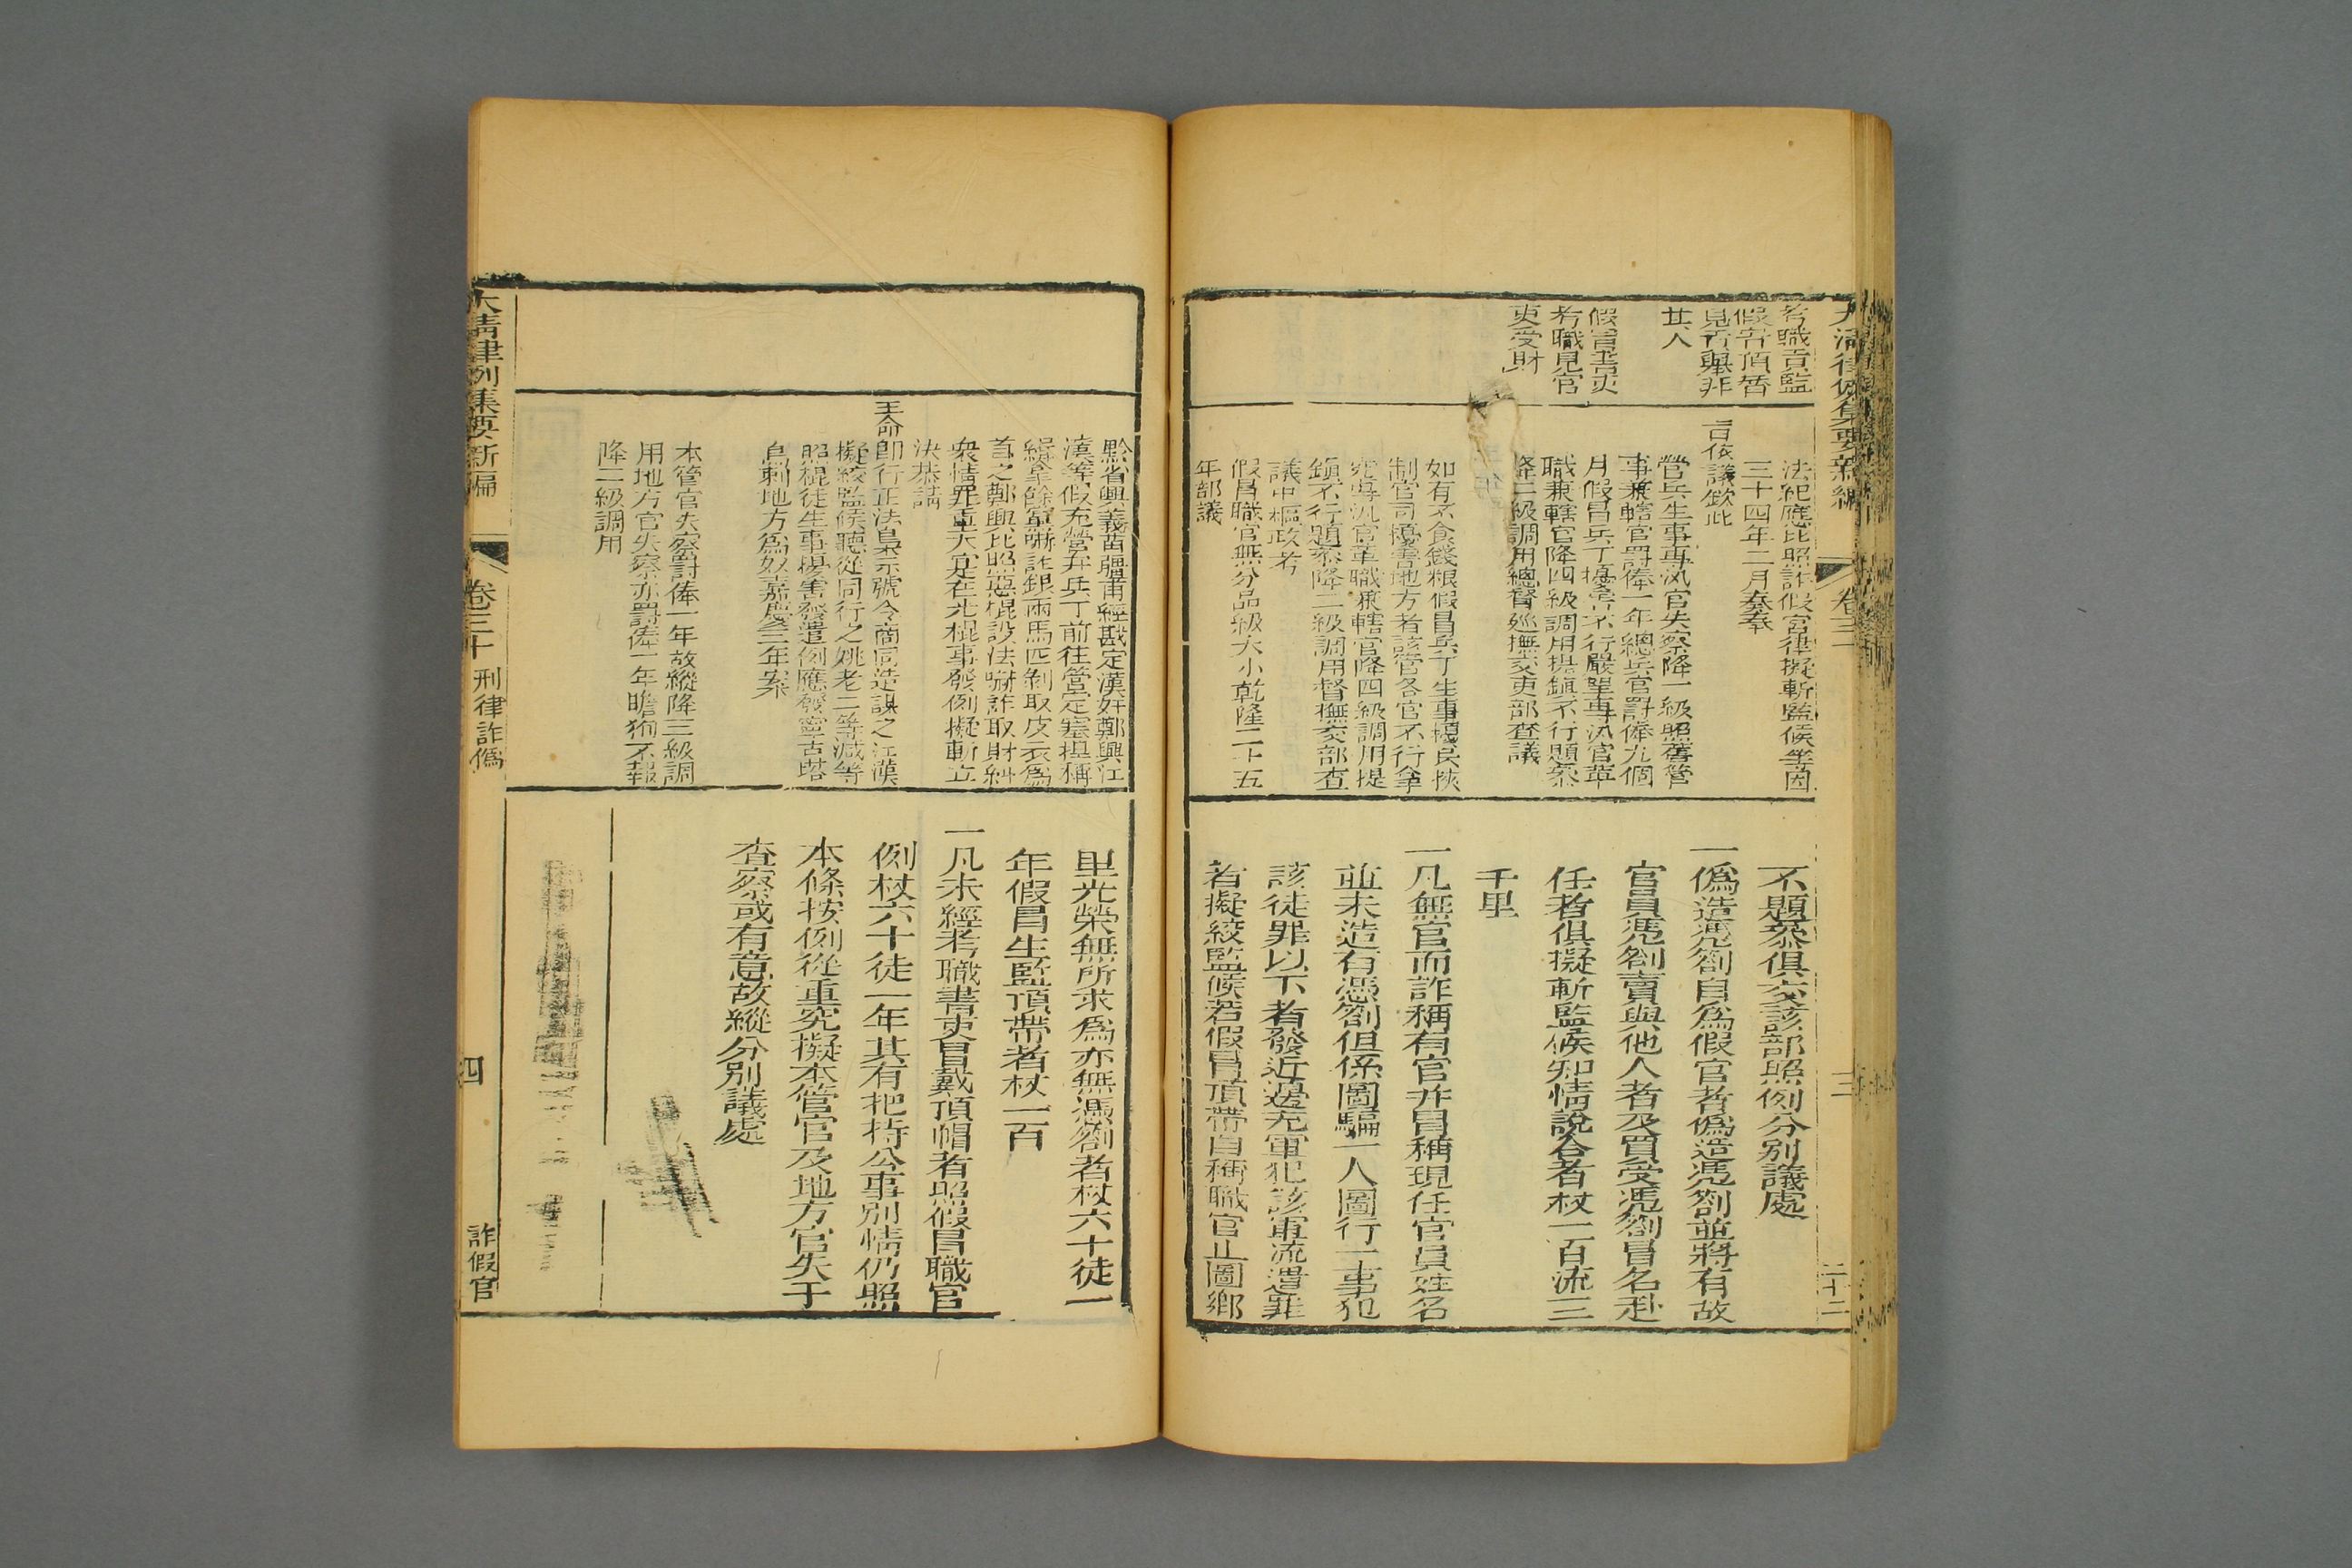 大清律例集要新編
卷三十
三
考職貢監
假官頂替
見吏舉非
其人
假冒書吏
考職見官
吏受財
法紀應比照詐假官律擬斬監候等因
三十四年二月奏奉
旨依議欽此
營兵生事專汛官失察降一級照舊管
事兼轄官罰俸一年總兵官罰俸九個
月假冒兵丁擾害不行嚴拏專汛官革
職兼轄官降四級調用提鎮不行題參
降二級調用總督巡撫交吏部查議
如有不食錢糧假冒兵丁生事擾民挾
制官司擾害地方者該管各官不行拿
究專汛官革職兼轄官降四級調用提
鎮不行題參降二級調用督撫交部查
議中樞政考
假冒職官無分品級大小乾隆二十五
年部議
不題參俱交該部照例分別議處
一偽造憑劄自為假官者偽造憑劄並將有故
官員憑劄賣與他人者及買受憑劄冒名赴
任者俱擬斬監候知情說合者杖一百流三
千里
一凡無官而詐稱有官并冒稱現任官員姓名
並未造有憑劄但係圖騙一人圖行一事犯
該徒罪以下者發近邊充軍犯該軍流遣罪
者擬絞監候若假冒頂帶自稱職官止圖鄉
黔省興義苗疆甫經戡定漢奸鄭興江
漢等假充營弁兵丁前往營定塞捏稱
緝拿餘黨嚇詐銀兩馬匹剝取皮衣為
首之鄭興比照惡棍設法嚇詐取財糾
眾情罪重大定在光棍事發例擬斬立
決恭請
王命即行正法梟示號令商同造謀之江漢
擬絞監候聽從同行之姚老二等減等
照棍徒生事擾害發遣例應發寧古塔
烏剌地方為奴嘉慶三年案
本管官失察罰俸一年故縱降三級調
用地方官失察亦罰俸一年瞻狥不報
降二級調用
里光榮無所求為亦無憑劄者杖六十徒一
年假冒生監頂帶者杖一百
一凡未經考職書吏冒戴頂帽者照假冒職官
例杖六十徒一年其有把持公事別情仍照
本條按例從重究擬本管官及地方官失于
查察或有意故縱分別議處
大清律例集要新編
卷三十
刑律詐偽
四
詐假官